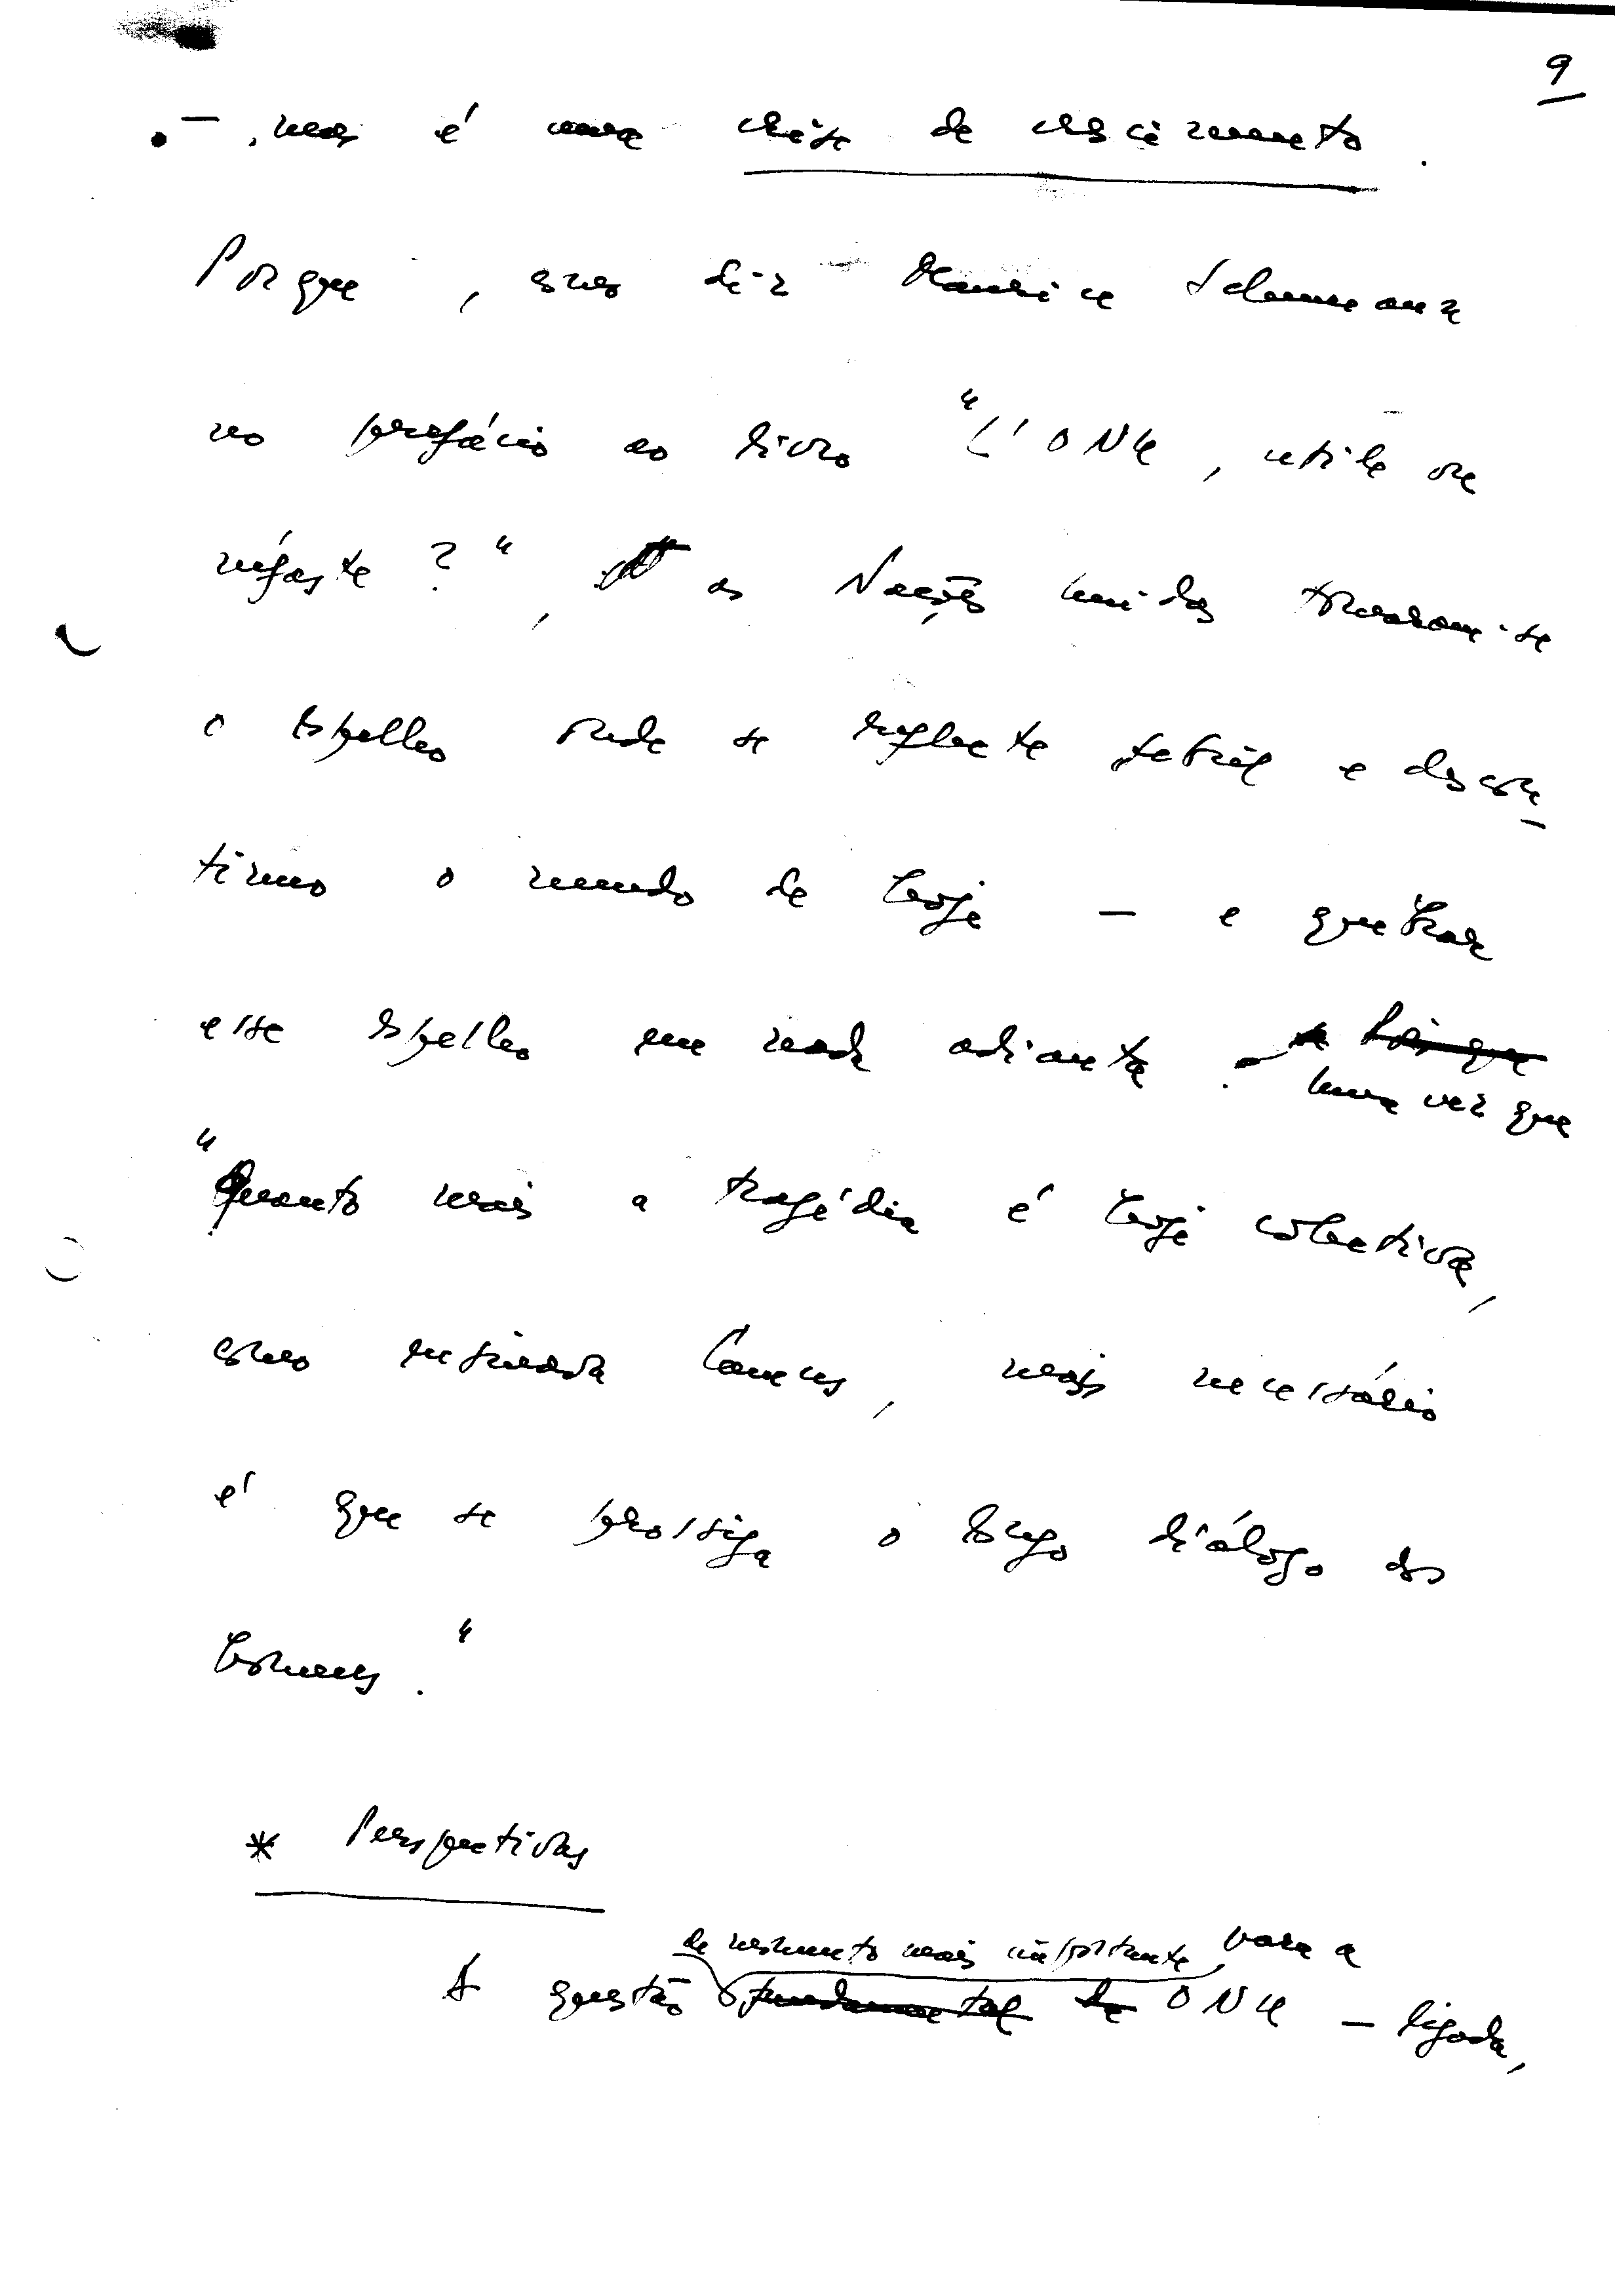 9
- , mas é uma crise de crescimento.
Porque, como diz Maurice Schumann
no prefácio ao livro "L'ONU, utile ou
néfaste?", as Nações Unidas tornaram-se
o espelho onde se reflecte febril e descon-
tínuo o mundo de hoje — e quebrar
esse espelho em nada adianta. Pois que
Uma vez que
"Quanto mais a tragédia é hoje colectiva,
como ensinava Camus, mais necessário
é que se prossiga o longo diálogo dos
homens."
* Perspectivas
de momento mais importante para a
A questão fundamental da ONU — ligada,